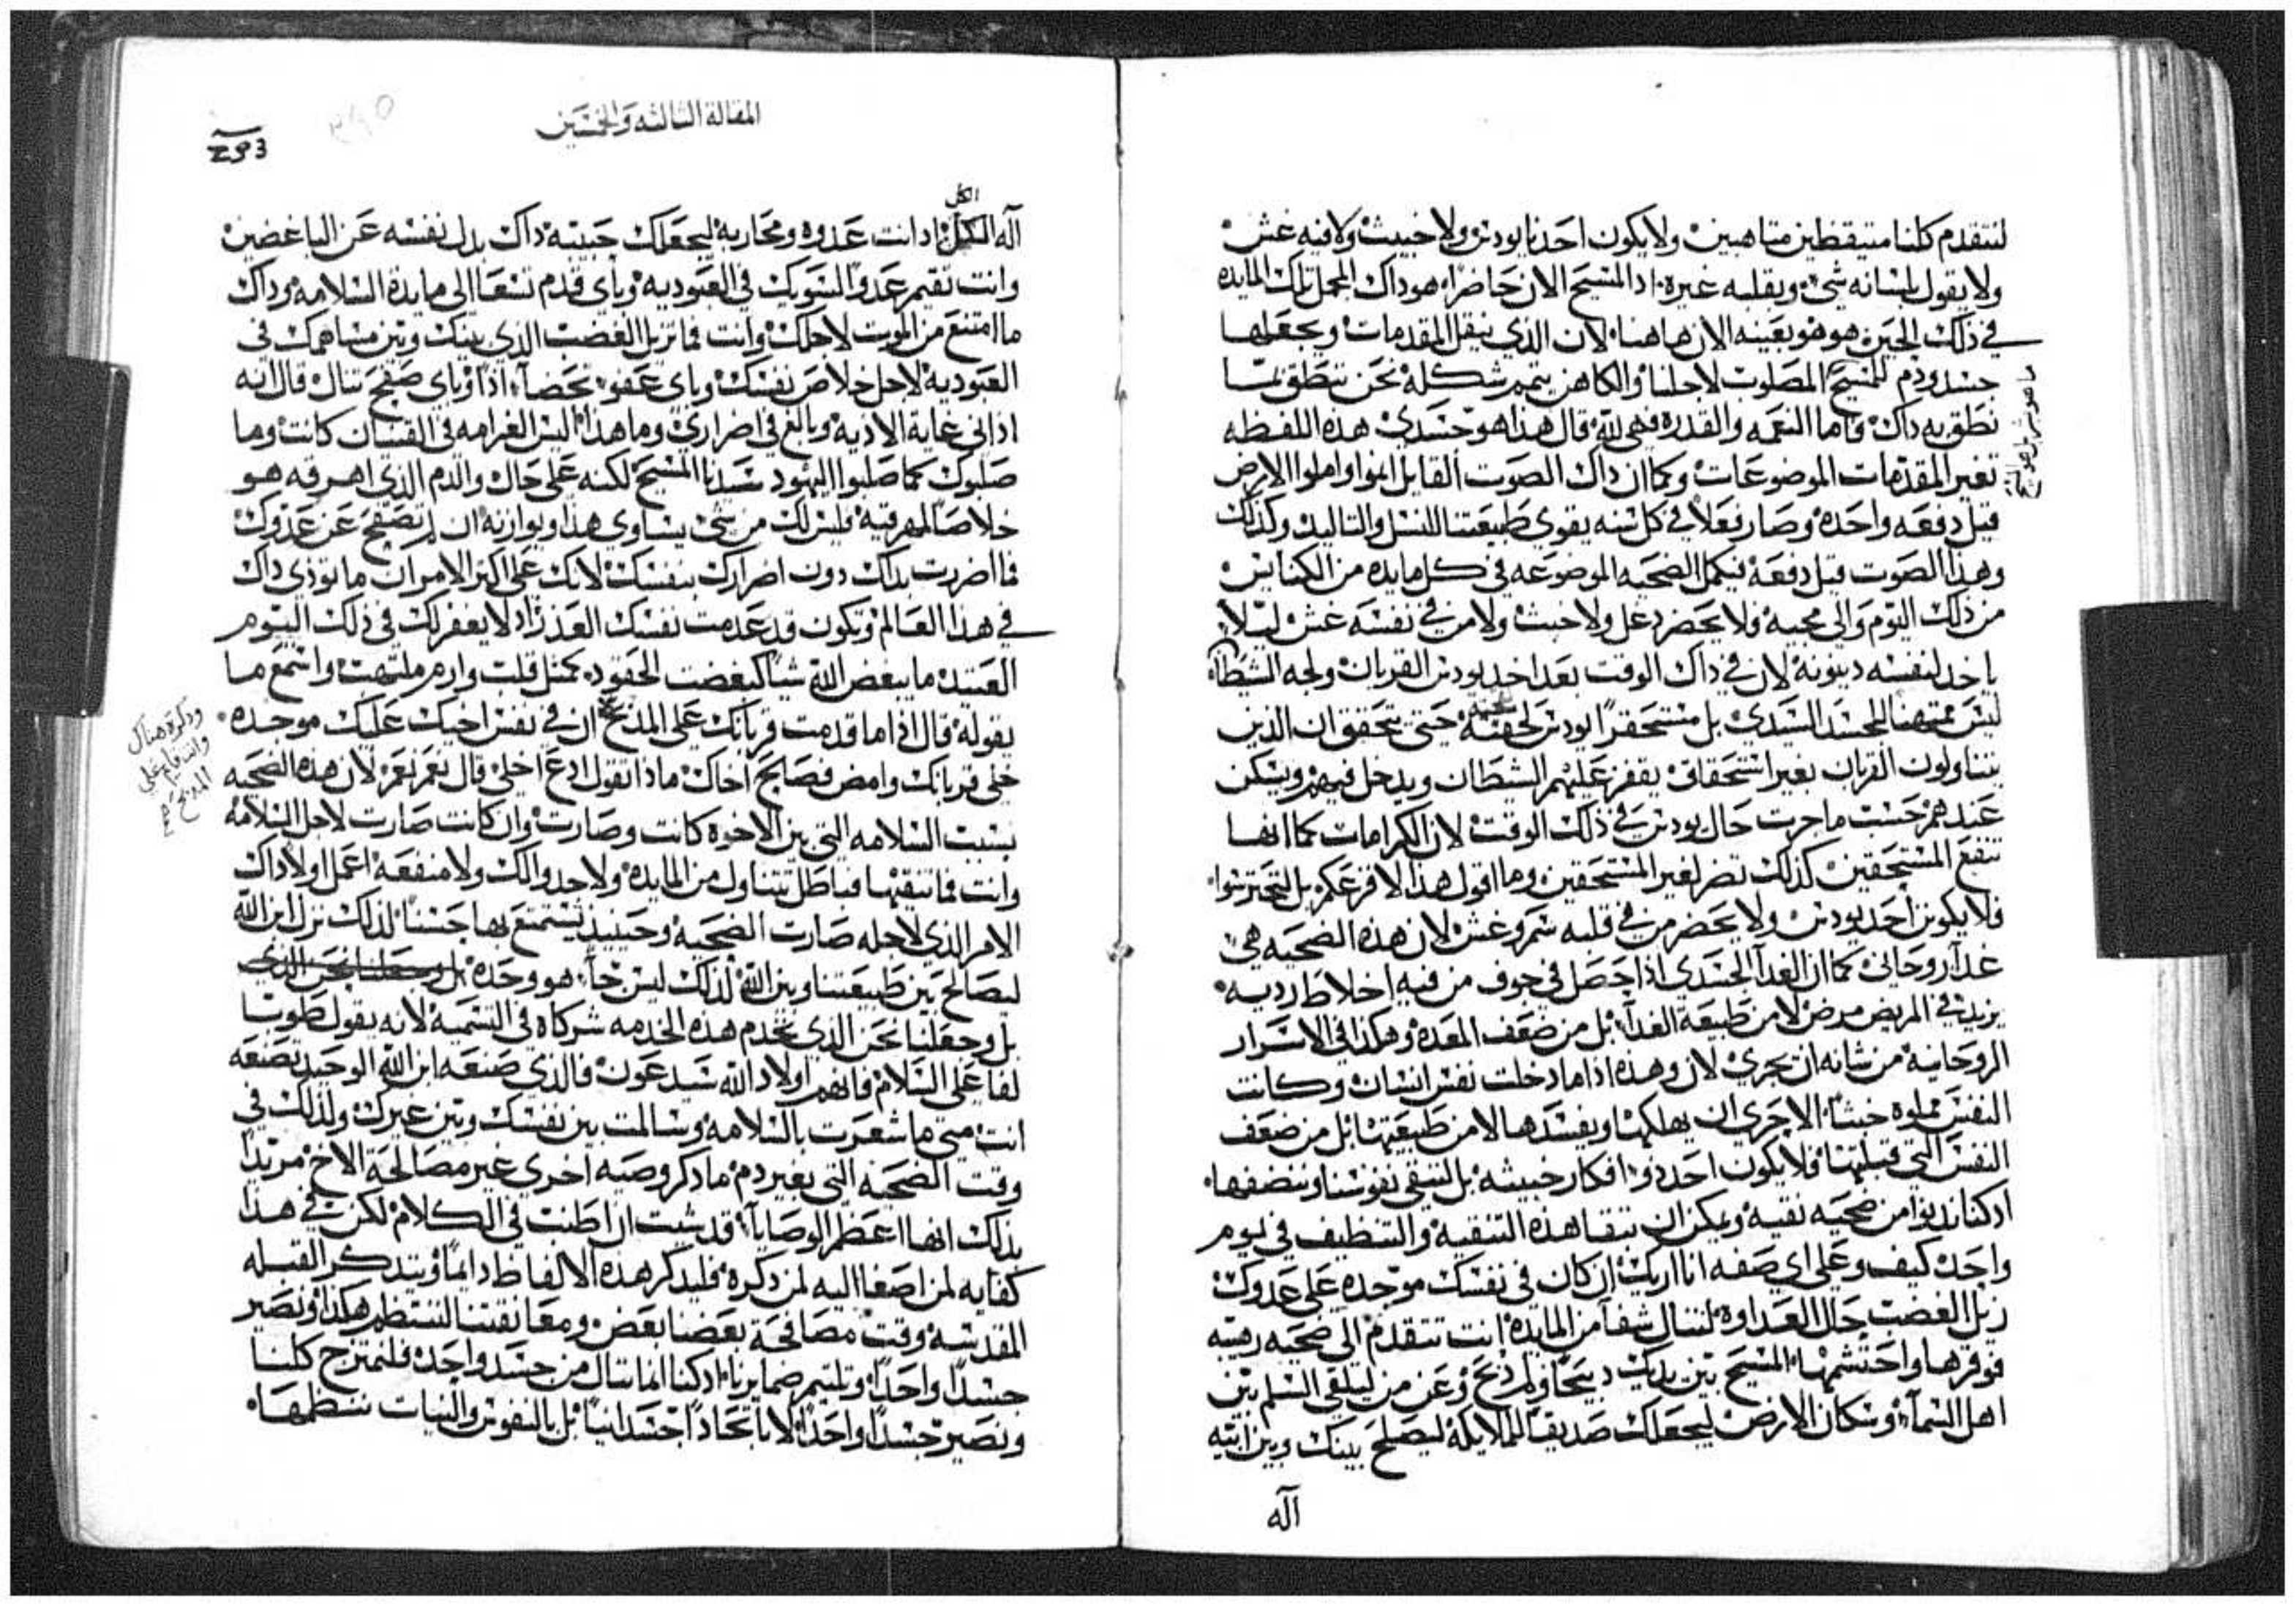 لنتقدم كلنا متيقظين متاهبين ولا يكون احدنا يودس ولا خبيث ولا فيه غش
ولا يقول بلسانه شي وبقلبه غيره اد المسيح الان حاضرا هوداك المجمل تلك المايده
في ذلك الحين هو هو بعينه الان هاهنا لان الذي ينقل المقدمات ويجعلها
جسد ودم المسيح المصلوب لاجلنا والكاهن يتمم شكله نحن ننطق بما
نطق به داك واما النعمه والقدره فهي لله قال هذا هو جسدي هذه اللفظه
تغير المقدمات الموضوعات وكما ان داك الصوت القايل انموا واملوا الارض
قيل دفعه واحده وصار فعلا في كل سنه يقوي طبيعتنا للنسل والتاليد وكذلك
وهذا الصوت قيل دفعه فيكمل الضحيه الموضوعه في كل مايده من الكنايس
من ذلك اليوم والى مجيه فلا يحضر دغل ولا خبث ولا من في نفسه غش ليلا
ياخد لنفسه دينونه لان في داك الوقت بعد اخد يودس القربان ولجه الشيطان
ليس ممتهنا للجسد السيدي بل مستحقرا ليودس لقحته حتى تتحقق ان الذين
يتناولون القربان بغير استحقاق يقفز عليهم الشيطان ويدخل فيهم ويسكن
عندهم حسب ما جرت حال يودس في ذلك الوقت لان الكرامات كما انها
تنفع المستحقين كذلك تضر لغير المستحقين وما اقول هذا لافزعكم بل لتحترسوا
فلا يكونن احد يودس ولا يحضر من في قلبه شر وغش لان هذه الضحيه هي
غدآ روحاني كما ان الغدآ الجسدي اذا حصل في جوف من فيه اخلاط رديه
يزيد في المريض مرض لا من طبيعة الغدآ بل من ضعف المعده وهكذا في الاسرار
الروحانيه من شانه ان يجري لان وهذه اذا ما دخلت نفس انسان وكانت
النفس مملوه خبثا الاحرى ان يهلكها ويفسدها لا من طبيعتها بل من ضعف
النفس التي قبلتها فلا يكون احد ذو افكار خبيثه بل لننقي نفوسنا وننضفها
ادكنا ندنوا من ضحيه نقيه ويمكن ان نتقا هذه التنقيه والتنظيف في يوم
واحد كيف وعلى اي صفه انا اريك ان كان في نفسك موجده على عدوك
زيل الغضب حل العداوه لتنال شفآ من المايده انت تتقدم الى ضحيه رهيبه
فوقرها واحتشمها المسيح بين يديك دبيحا ولم دبح وعن من ليلقي السلم بين
اهل السمآ وسكان الارض ليجعلك صديقا للملايكه ليصلح بينك وبين ابيه
آله
المقالة الثالثه والخمسين
الكل
آله الكل اد انت عدوه ومحاربه ليجعلك حبيبه داك بدل نفسه عن الباغضين
وانت تقيم عدوا لشريكك في العبوديه وباي قدم تسعا الى مايدة السلامه وداك
ما امتنع من الموت لاجلك وانت فما تزيل الغضب الذي بينك وبين مساهمك في
العبوديه لاجل خلاص نفسك وباي عفو تحضا اذا وباي صفح تنال قال انه
اذاني غاية الاديه وبالغ في اضراري وما هذا اليس الغرامه في القنيان كانت وما
صلبوك كما صلبوا اليهود سيدنا المسيح لكنه على حال والدم الذي اهرقه هو
خلاصا لمهرقيه وليس لك من شي يساوي هذا ويوازنه ان لم تصفح عن عدوك
فما اضررت بداك دون اضرارك بنفسك لانك على اكثر الامر ان ما توذي داك
في هذا العالم وتكون قد عدمت نفسك العدر اد لا يغفر لك في ذلك اليوم
العتيد ما يبغض الله شيا كبغضت الحقود كمثل قلب وارم ملتهب واسمع ما
بقوله قال اذا ما قدمت قربانك على المدبح ان في نفس اخيك عليك موجده
ودكرة هناك
وانت قايم على
المدبح
خلي قربانك وامض فصالح اخاك مادا تقول ادع اخلي قال نعم نعم لان هذه الضحيه
بسبب السلامه التي بين الاخوه كانت وصارت وان كانت صارت لاجل السلامه
وانت فما تنقيها فباطل تتناول من المايده ولا جدوالك ولا منفعه اعمل اولا داك
الامر الذي لاجله صارت الضحيه وحينيذ تستمتع بها حسنا لذلك نزل ابن الله
ليصالح بين طبيعتنا وبين الله لذلك ليس جآ هو وحده بل وجعلنا نحن الذي
بل وجعلنا نحن الذي نخدم هذه الخدمه شركاه في التسميه لانه يقول طوبا
لفاعلى السلام فانهم اولاد الله سيدعون فالذي صنعه ابن الله الوحيد تصنعه
انت متى ما شعرت بالسلامه وسالمت بين نفسك وبين غيرك ولذلك في
وقت الضحيه التي بغير دم ما ذكر وصيه اخرى غير مصالحة الاخ مريدا
بذلك انها اعظم الوصايآ قد شيت ان اطنب في الكلام لكن في هذا
كفايه لمن اصغا اليه لمن دكره فليدكر هذه الالفاظ دايما ويتدكر القبله
المقدسه وقت مصافحة بعضنا بعض ومعانقتنا لننتظم هكذا ونصير
جسدا واحدا وتلتيم ضمايرنا ادكنا انما ننال من جسد واحد فلنمتزج كلنا
ونصير جسدا واحدا لا باتحادا جسدانيا بل بالنفوس والنيات ننظمها